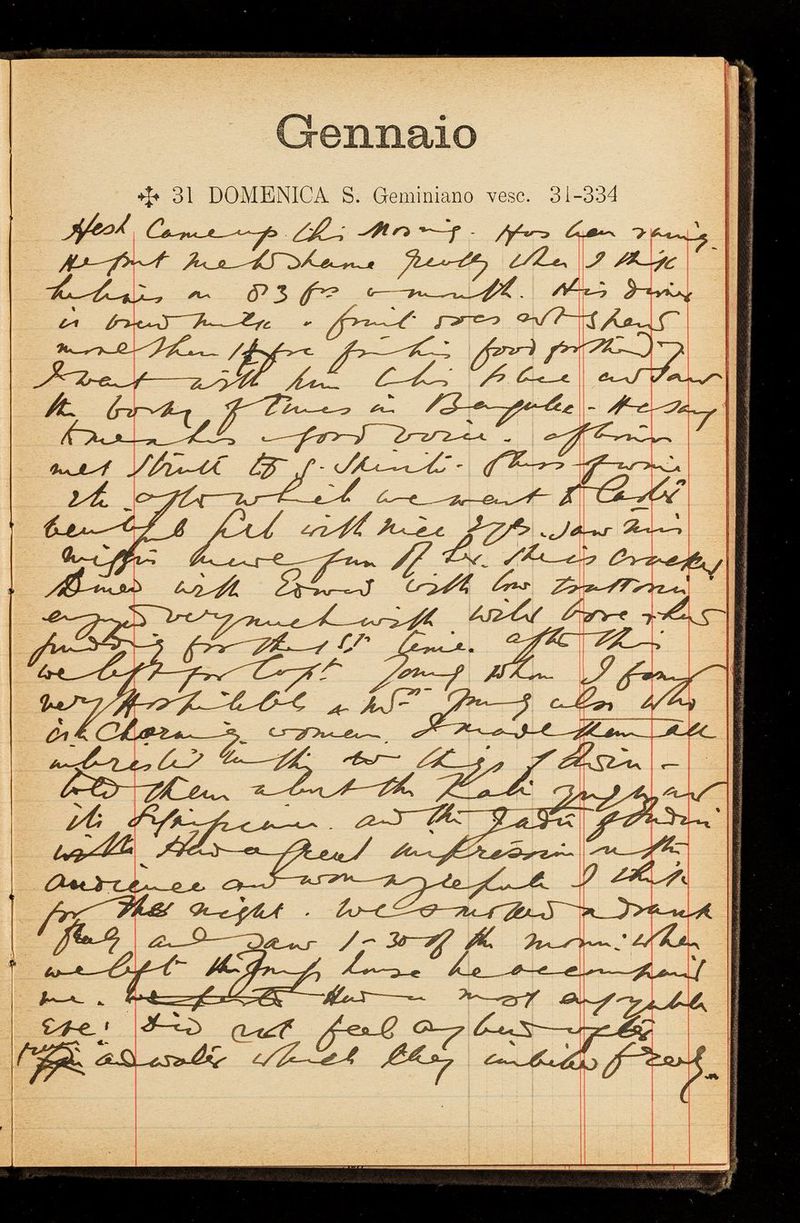 Gennaio
✠ 31 DOMENICA S. Geminiano vesc. 31-334
Hesh Came up this Morning. Has been raining.
He put me to shame greatly when I think
he lives on 83 frs a month. His dinner
is bread milk & fruit does not spend
more than
I went with him to his place and saw
the of Times in - He sang
to me a good voice.
met Strutt S. Spirito. Glass of wine
etc. after which we went to
beautiful girl with nice Eyes. Saw Miss
made fun of her. She is cracked
Dined with Edward with trattoria
enjoyed very much with wild bore & had
pudding for the 1st time. After this
we left for Capt. Young whom I found
very Hospitable & Mrs Young also who
is a Charming woman. I made them all
interested in the things of India -
told them about the Kali and
its Significance. and the Jadu of India
Had a great impression on the
audience and won my I think
for the night. We smoked & drank
freely and saw 1-30 of the morn: when
we left the Youngs house he accompanied
me. Had a most enjoyable
Eve: Did not feel any bad
and water which they imbibed freely.